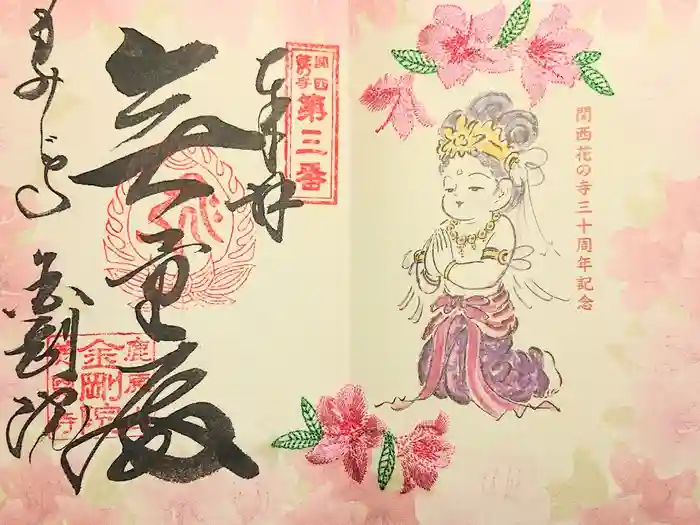 関西花の寺三十周年記念
奉拝
関西
花の寺
第三番
無量殿
もみじでら
金剛院
鹿原山
金剛院